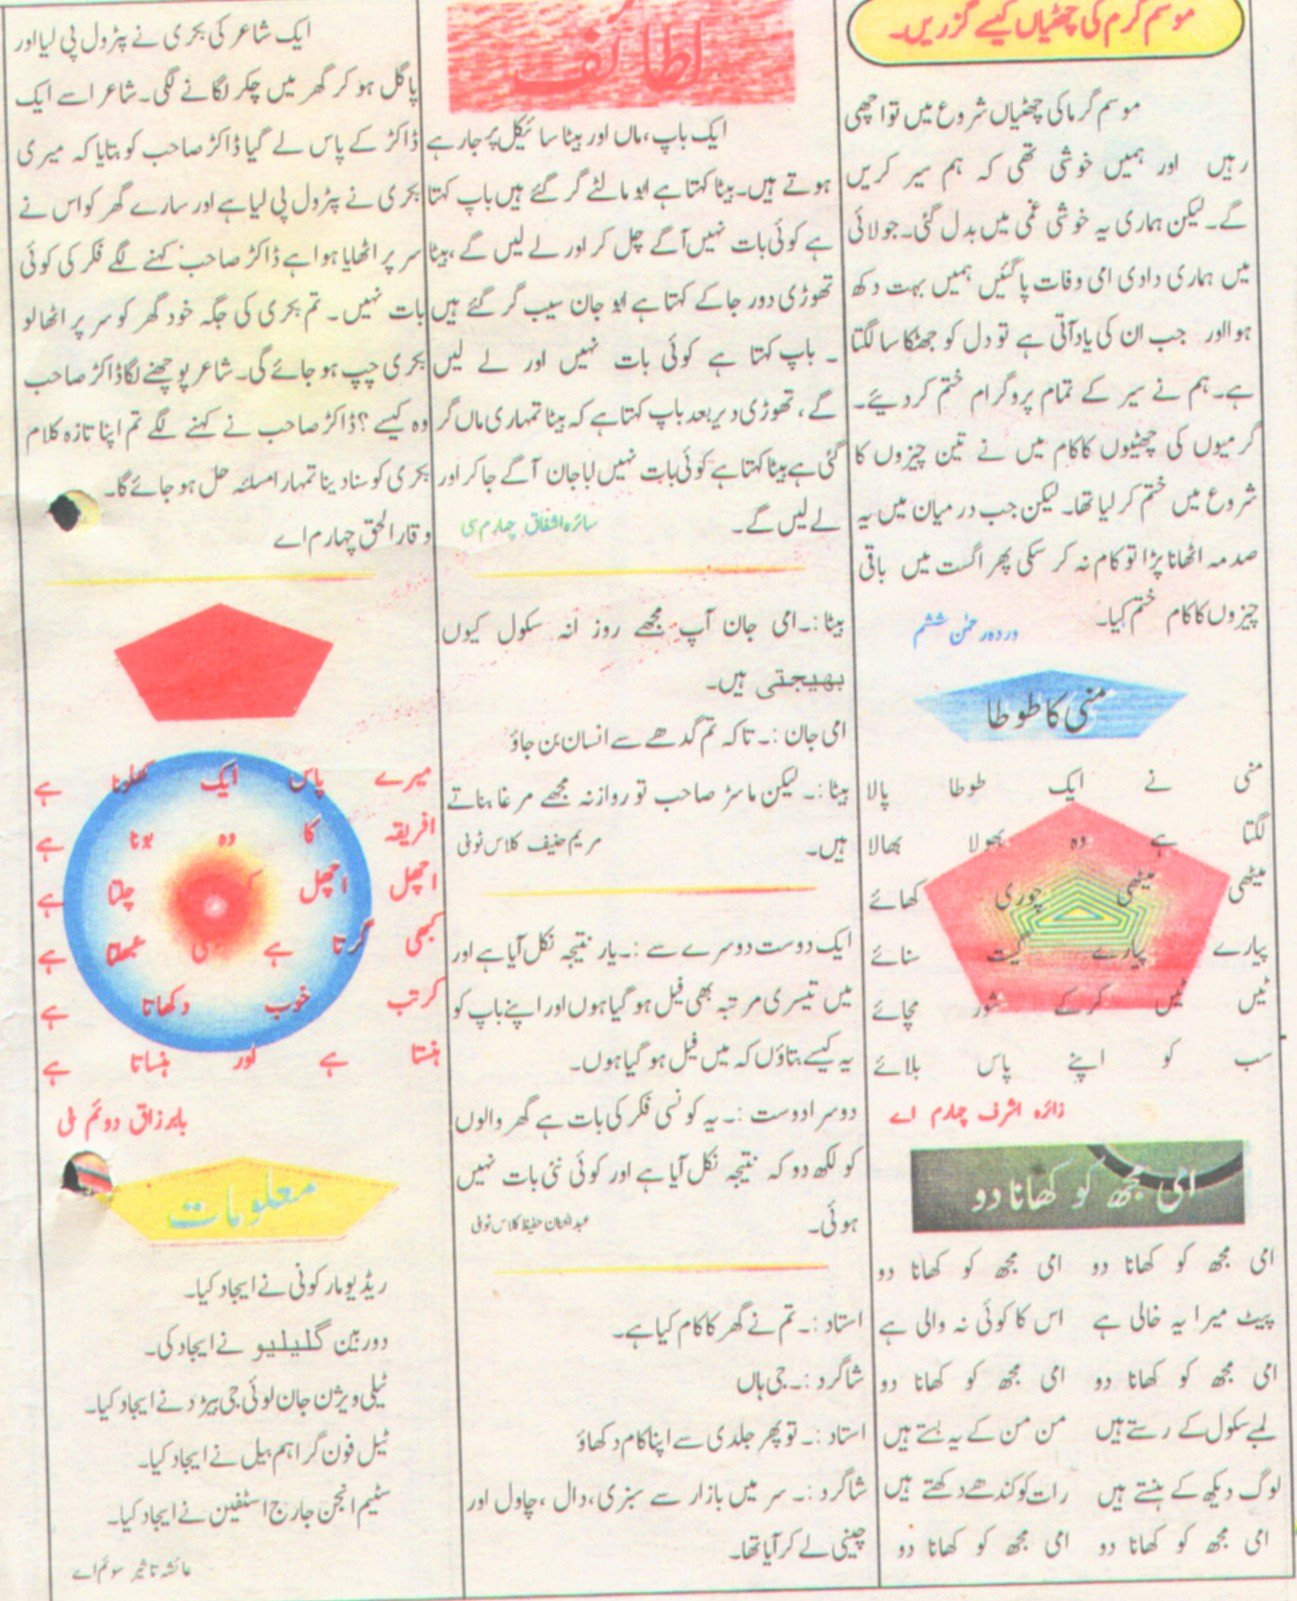 موسم گرم کی چھٹیاں کیسے گزریں۔
موسم گرما کی چھٹیاں شروع میں تو اچھی
رہیں اور ہمیں خوشی تھی کہ ہم سیر کریں
گے۔ لیکن ہماری یہ خوشی غمی میں بدل گئی۔ جولائی
میں ہماری دادی امی وفات پا گئیں ہمیں بہت دکھ
ہوااور جب ان کی یاد آتی ہے تو دل کو جھٹکا سا لگتا
ہے۔ ہم نے سیر کے تمام پروگرام ختم کر دیئے۔
گرمیوں کی چھٹیوں کا کام میں نے تین چیزوں کا
شروع میں ختم کر لیا تھا۔ لیکن جب درمیان میں یہ
صدمہ اٹھانا پڑا تو کام نہ کر سکی پھر اگست میں باقی
چیزوں کا کام ختم کیا۔
منی کا طوطا
منی نے ایک طوطا پالا
لگتا ہے وہ بھولا بھالا
میٹھی میٹھی چوری کھائے
پیارے پیارے گیت سنائے
ٹیں ٹیں کرکے شور مچائے
سب کو اپنے پاس بلائے
زائرہ اشرف چہارم اے
امی مجھ کو کھانا دو
امی مجھ کو کھانا دو امی مجھ کو کھانا دو
پیٹ میرا یہ خالی ہے اس کا کوئی نہ والی ہے
امی مجھ کو کھانا دو امی مجھ کو کھانا دو
لمبے سکول کے رستے ہیں من من کے یہ بستے ہیں
لوگ دیکھ کے ہنستے ہیں رات کو کندھے دکھتے ہیں
امی مجھ کو کھانا دو امی مجھ کو کھانا دو
لطائف
ایک باپ، ماں اور بیٹا سائیکل پر جا رہے
ہوتے ہیں۔ بیٹا کہتا ہے ابو مالٹے گر گئے ہیں باپ کہتا
ہے کوئی بات نہیں آگے چل کر اور لے لیں گے، بیٹا
تھوڑی دور جا کے کہتا ہے ابو جان سیب گر گئے ہیں
۔ باپ کہتا ہے کوئی بات نہیں اور لے لیں
گے، تھوڑی دیر بعد باپ کہتا ہے کہ بیٹا تمہاری ماں گر
گئی ہے بیٹا کہتا ہے کوئی بات نہیں ابا جان آگے جا کر اور
لے لیں گے۔ سائرہ اشفاق چہارم سی
بیٹا :۔ امی جان آپ مجھے روز انہ سکول کیوں
بھیجتی ہیں۔
امی جان :۔ تاکہ تم گدھے سے انسان بن جاؤ
بیٹا :۔ لیکن ماسڑ صاحب تو روازنہ مجھے مرغا بناتے
ہیں۔ مریم حنیف کلاس ٹوئی
ایک دوست دوسرے سے :۔ یار نتیجہ نکل آیا ہے اور
میں تیسری مرتبہ بھی فیل ہو گیا ہوں اور اپنے باپ کو
یہ کیسے بتاؤں کہ میں فیل ہو گیا ہوں۔
دوسرا دوست :۔ یہ کونسی فکر کی بات ہے گھر والوں
کو لکھ دو کہ نتیجہ نکل آیا ہے اور کوئی نئی بات نہیں
ہوئی۔ عبدالحنان حفیظ کلاس ٹوئی
استاد :۔ تم نے گھر کا کام کیا ہے۔
شاگرد :۔ جی ہاں
استاد :۔ تو پھر جلدی سے اپنا کام دکھاؤ
شاگرد :۔ سر میں بازار سے سبزی، دال، چاول اور
چینی لے کر آیا تھا۔
ایک شاعر کی بحری نے پٹرول پی لیا اور
پاگل ہو کر گھر میں چکر لگانے لگی۔ شاعر اسے ایک
ڈاکٹر کے پاس لے گیا ڈاکٹر صاحب کو بتایا کہ میری
بحری نے پٹرول پی لیا ہے اور سارے گھر کو اس نے
سر پر اٹھایا ہوا ہے ڈاکٹر صاحب کہنے لگے فکر کی کوئی
بات نہیں۔ تم بحری کی جگہ خود گھر کو سر پر اٹھا لو
بحری چپ ہو جائے گی۔ شاعر پوچھنے لگا ڈاکٹر صاحب
وہ کیسے؟ ڈاکٹر صاحب نے کہنے لگے تم اپنا تازہ کلام
بحری کو سنا دینا تمہارا مسئلہ حل ہو جائے گا۔
وقار الحق چہارم اے
میرے پاس ایک کھلونا ہے
افریقہ کا وہ بونا ہے
اچھل اچھل کر چلتا ہے
کبھی گرتا ہے کبھی سنبھلتا ہے
کرتب خوب دکھاتا ہے
ہنستا ہے اور ہنساتا ہے
بابر زاق دوئم ٹی
معلومات
ریڈیو مارکونی نے ایجاد کیا۔
دوربین گلیلیو نے ایجاد کی۔
ٹیلی ویژن جان لوئی جی بیڑد نے ایجاد کیا۔
ٹیل فون گراہم بیل نے ایجاد کیا۔
سٹیم انجن جارج اسٹفین نے ایجاد کیا۔
عائشہ تاثیر سوئم اے